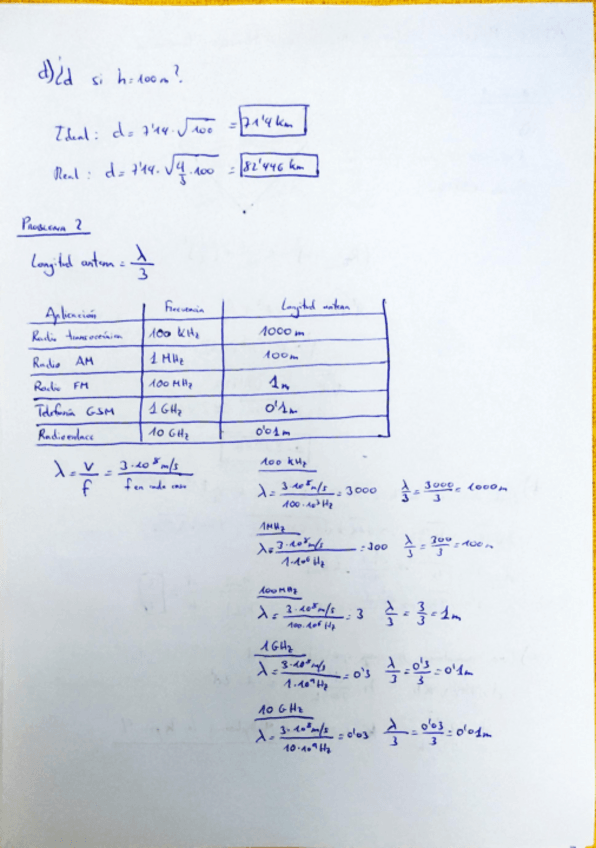 d) ¿d si h=100m?
Ideal: d= 7'14·√100 = 71'4 km
Real: d= 7'14·√(4/3·100) = 82'446 km
PROBLEMA 2
Longitud antena = λ/3
Aplicación Frecuencia Longitud antena
Radio transoceánica 100 KHz 1000m
Radio AM 1 MHz 100m
Radio FM 100 MHz 1m
Telefonía GSM 1 GHz 0'1m
Radioenlace 10 GHz 0'01m
λ = v/f = 3·10⁸ m/s / f en cada caso
100 KHz
λ = 3·10⁸ m/s / 100·10³ Hz = 3000 λ/3 = 3000/3 = 1000m
1MHz
λ = 3·10⁸ m/s / 1·10⁶ Hz = 300 λ/3 = 300/3 = 100m
100MHz
λ = 3·10⁸ m/s / 100·10⁶ Hz = 3 λ/3 = 3/3 = 1m
1GHz
λ = 3·10⁸ m/s / 1·10⁹ Hz = 0'3 λ/3 = 0'3/3 = 0'1m
10 GHz
λ = 3·10⁸ m/s / 10·10⁹ Hz = 0'03 λ/3 = 0'03/3 = 0'01m